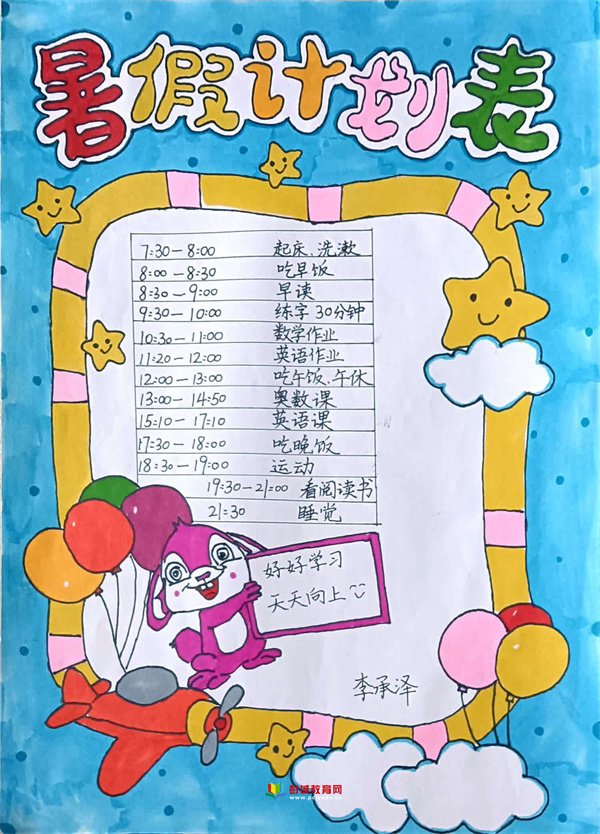 暑假计划表
7:30—8:00 起床、洗漱
8:00—8:30 吃早饭
8:30—9:00 早读
9:30—10:00 练字30分钟
10:30—11:00 数学作业
11:20—12:00 英语作业
12:00—13:00 吃午饭、午休
13:00—14:50 奥数课
15:10—17:10 英语课
17:30—18:00 吃晚饭
18:30—19:00 运动
19:30—21:00 看阅读书
21:30 睡觉
好好学习
天天向上
李承泽